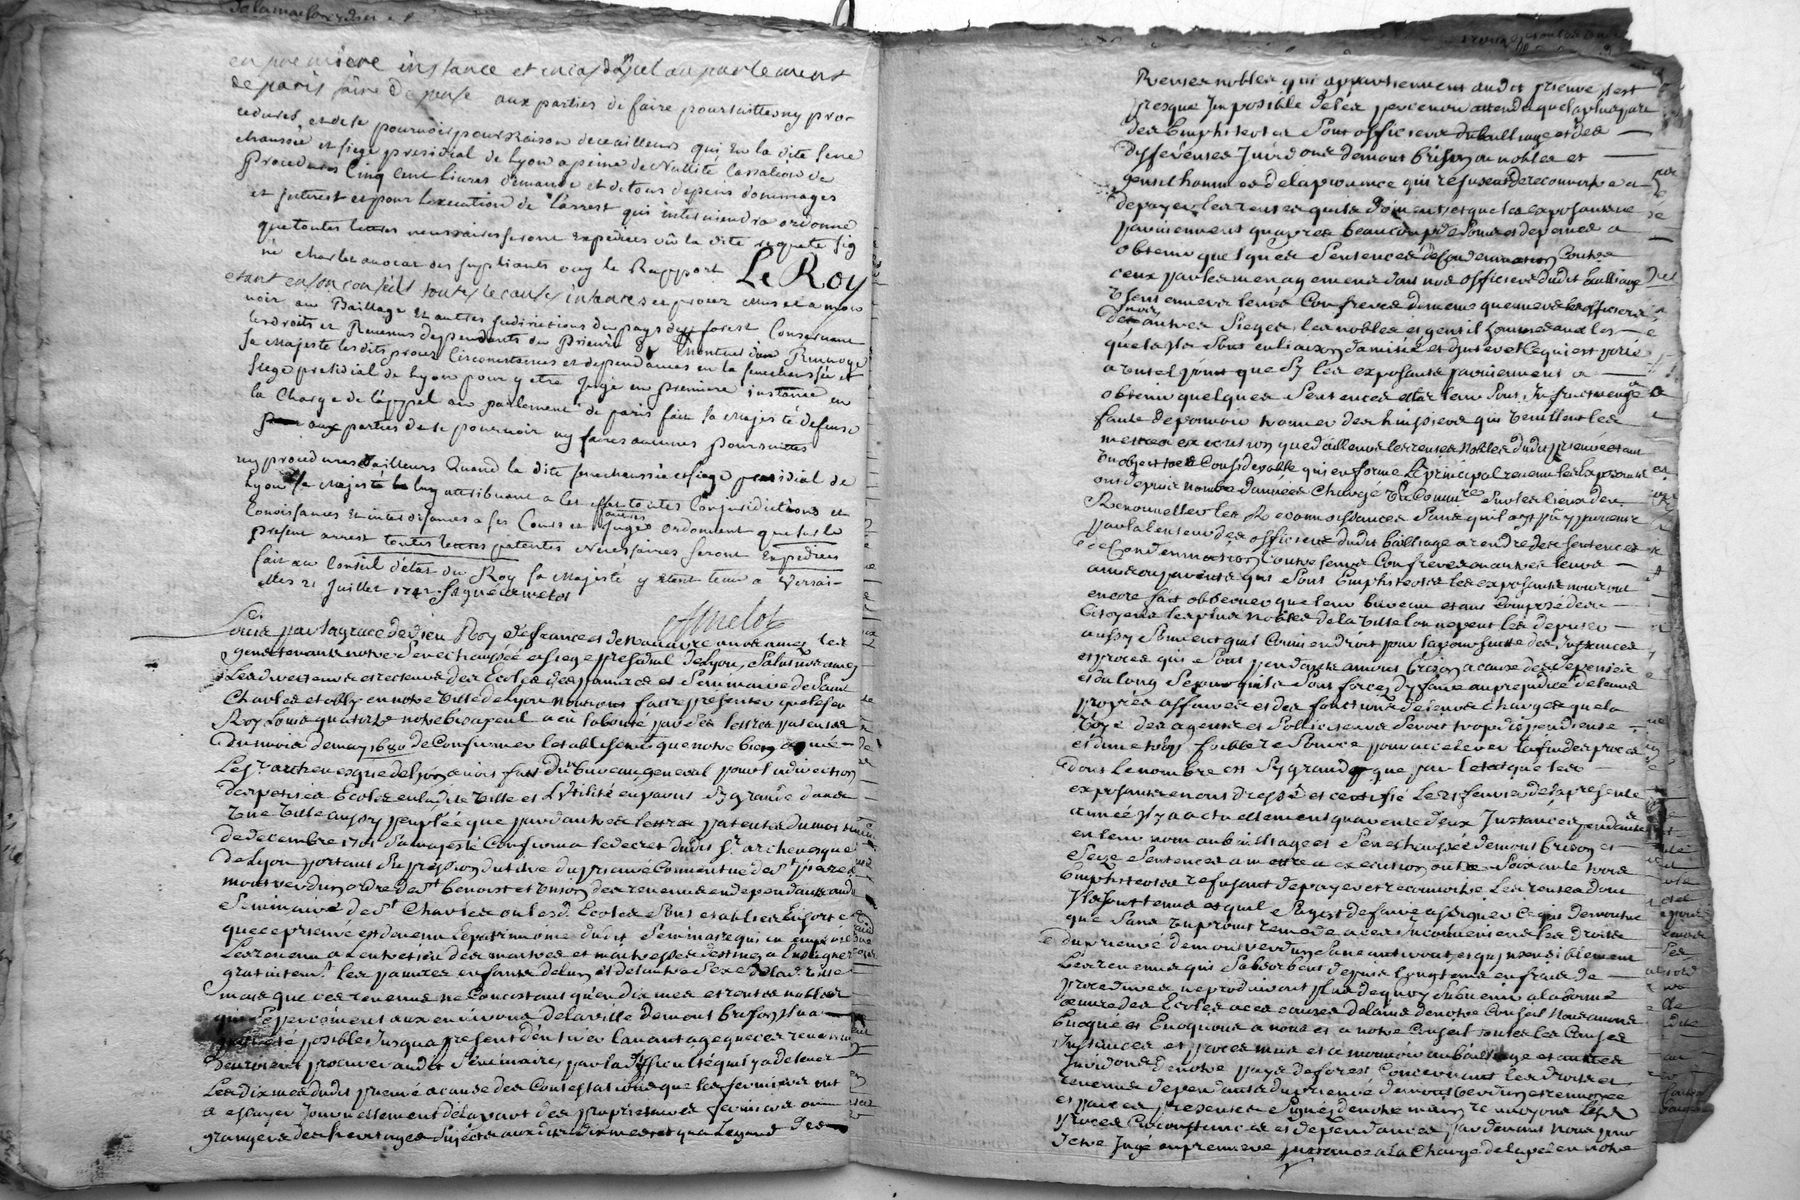 en premiere instance et en cas d'apel au parlement
de paris faire defense aux parties de faire poursuittes ny pro-
cedures et de se pourvoir pour raison de ce ailleurs qui en la dite sene
chaussée et siege presidial de Lyon a peine de Nullité Cassation de
Procedures Cinq cent livres d'amande et de tous depens dommages
et Interest et pour l'execution de l'arrest qui interviendra ordonne
que toutes lettres necessaires seront Expediées vû la dite requete sig
né avocat des supliants ouy le Rapport LE ROY
etant en son conseil toutes le causes instances et procez mus et a mou
voir au Baillage et autres Juridictions du pays de forest Concernant
les droits et Revenus dependants du Prieuré de Montverdun Renvoye
sa Majesté les dits procez Circonstances et dependances en la senechaussée et
siege presidial de Lyon pour y etre Jugé en premiere instance en
la Charge de l'appel au parlement de paris fait sa Majesté defense
aux parties de se pourvoir ny faire aucunes Poursuittes
ny procedures d'ailleurs Quand la dite senechaussée et siege presidial de
Lyon sa Majesté luy attribuant a cet effet toutes Cour jurididictions et
Conoissances Et interdisances a ses Cours et autres Juges ordonent que sur le
present arrest toutes lettres patentes Necessaires seront Expediées
fait au Conseil d'etat du Roy sa Majesté y etant tenu a Versai-
lles 21 Juillet 1742 Signé amelot
Amelot
Louis par la grace de Dieu Roy de france et de Navarre a nos amez les
gens tenants notre Senechaussée et siege presidial de Lyon, Salut nos amez
Les directeurs et recteurs des Ecoles des pauvres et Seminaire de Saint
Charles etably en notre ville de Lyon Nous ont fait representer que le feu
Roy Louis quatorze notre bisayeul a eû la bonté par ses lettres patentes
du mois de may 1680 de Confirmer l'etablissement que notre bien amé
Le Sr. archevesque de Lyon avoit fait d'un bureau general pour la direction
des petites Ecoles en la dite ville et l'utilité en parut sy grande dans
une ville aussy peuplée que par d'autres lettres patentes du mois
de decembre 1701 Sa majesté Confirma le decret dudit Sr. archevesque
de Lyon portant Supression du titre du prieuré Conventuel de St. pierre
montverdun ordre de St. benoist et union des revenus en dependants au
Seminaire de St. Charles ou lesd. Ecoles Sont etablies En sorte
que ce prieuré est devenu le patrimoine dudit Seminaire qui en employe
Les revenus a l'entretien des maitres et maitresses destinez a Enseigner
gratuitemt. les pauvres enfants de l'un et de l'autre Sexe de la d. ville
mais que ces revenus ne Consistant qu'en dixmes et rentes nobles
qui se perçoivent aux environs de la ville de montbrison Il n'a
pas eté possible Jusqu'a present d'en tirer l'avantage que ces revenus
devroient procurer audit Seminaire, par la difficulté qu'il y a de lever
Les dixmes dudit prieuré a cause des Contestations que les fermiers ont
a essuyer Journellement de la part des proprietaires fermiers ou
grangers des heritages Sujets aux dites dixmes et qu'a l'egard des
Rentes nobles qui appartiennent audit prieuré Il est
presque Impossible de les percevoir attendu que la plus part
des Emphiteotes Sont officiers du bailliage et des
differentes Juridons. de montbrison ou nobles et
gentilhommes de la province qui refusent de reconnoitre et
de payer les rentes qu'ils doivent, et que les exposants ne
parviennent qu'apres beaucoup de soins et depenses a
obtenir quelques Sentences de Condemnation Contre
ceux par les menagement dont nos officiers dudit bailliage
usent envers leurs Confreres de meme qu'envers les officiers
des autres Sieges, les nobles et gentilhommes avec les-
quels Ils Sont en liaison d'amitié et d'interet ce qui est porté
a un tel point que Sy les exposants parviennent a
obtenir quelques Sentences elles leur Sont Infructueuse
faute de pouvoir trouver des huissiers qui veuillent les
mettre a execution que d'ailleurs les rentes Nobles dudit prieuré etant
un objet tres Considerable qui en forme le principal revenu les Exposants
ont depuis nombre d'années Chargé un Commre. Sur les lieux de
Renouveller les Reconnoissances Sans qu'il ayt pû y parvenir
par la lenteur des officiers dudit bailliage a rendre des Sentences
de Condemnation Contre leurs Confreres ou autres leurs
amis ou parents qui Sont Emphiteotes les exposants nous ont
encore fait observer que leur bureau etant Composé des
Citoyens les plus Nobles de la ville l'on ne peut les deputer
aussy Souvent qu'il Conviendroit pour la poursuitte des Instances
et procez qui Sont pendants a montbrison a cause des depenses
et du long Sejour qu'ils Sont forcez d'y faire au prejudice de leurs
propres affaires et des fonctions de leurs Charges que la
voye des agents et Solliciteurs Seroit trop dispendieuse
et d'une trop foible resource pour accelerer la fin des procez
dont le nombre est Sy grand que par l'etat que les
exposants en ont dressé et certifié le 15 fevrier de la presente
année Il y a actuellement quarante deux Instances pendantes
en leur nom au bailliage et Senechaussée de montbrison et
Seize Sentences a mettre a execution outre Soixante trois
Emphiteotes refusant de payer et reconnoitre les rentes dont
Ils Sont tenus et qu'il s'agist de faire assigner ce qui demontre
que Sans un prompt remede a ces Inconvenients les droits
du prieuré de montverdun S'aneantiront, et qu'insensiblement
Les revenus qui s'absorbent depuis longtems en frais de
procedures ne produiront plus de quoy Subvenir a la bonne
œuvre des Ecoles a ces causes de l'avis de notre Conseil Nous avons
Evoqué et Evoquons a nous et a notre Conseil toutes les Causes
Instances et procez mus et a mouvoir au bailliage et autres
Juridons. de notre pays de forest Concernant les droits et
revenus dependants du prieuré de montverdun et renvoyé
et par ces presentes Signées de notre main, renvoyons lesd.
procez Circonstances et dependances pardevant vous pour
y etre Jugé en premiere Instance a la Charge de l'apel en notre